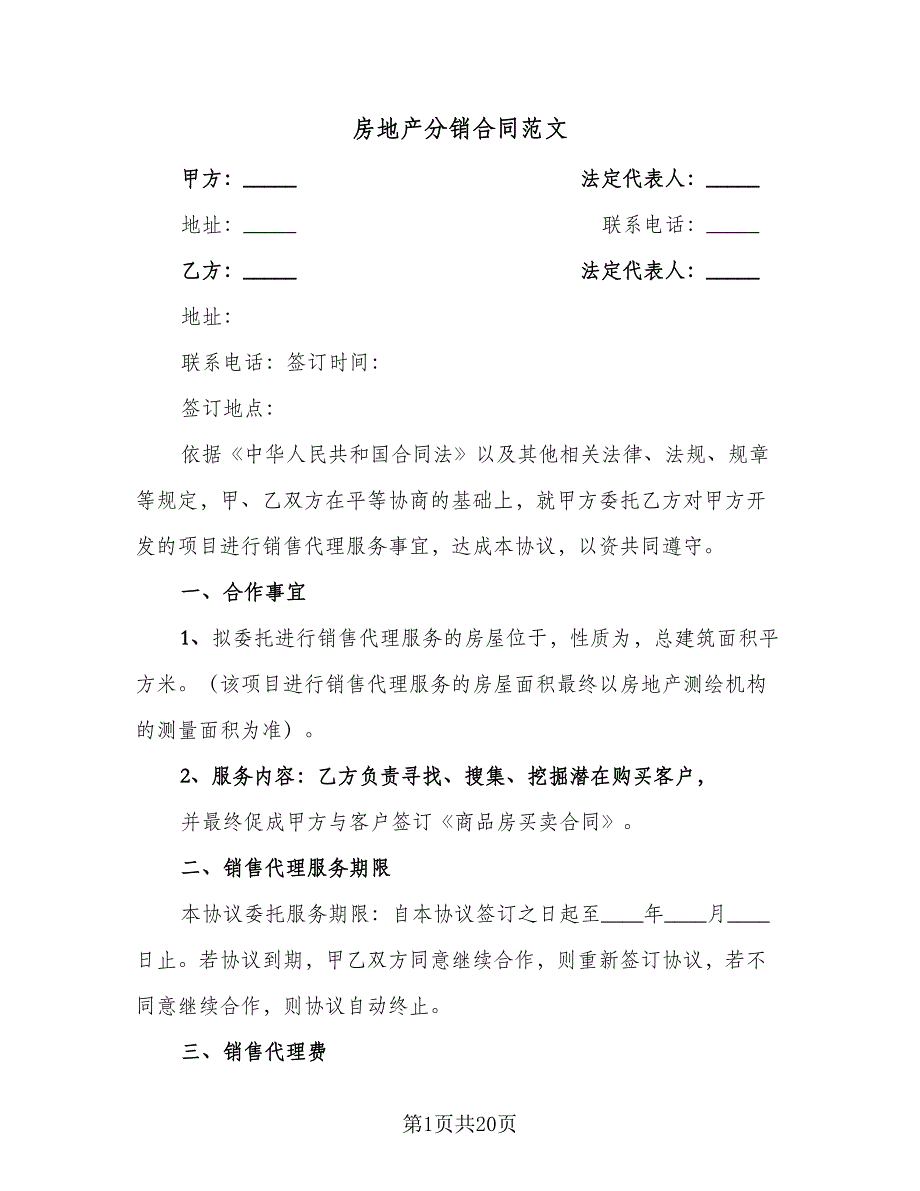 房地产分销合同范文
甲方：_____ 法定代表人：_____
地址：_____ 联系电话：_____
乙方：_____ 法定代表人：_____
地址：
联系电话：签订时间：
签订地点：
依据《中华人民共和国合同法》以及其他相关法律、法规、规章
等规定，甲、乙双方在平等协商的基础上，就甲方委托乙方对甲方开
发的项目进行销售代理服务事宜，达成本协议，以资共同遵守。
一、合作事宜
1、拟委托进行销售代理服务的房屋位于，性质为，总建筑面积平
方米。（该项目进行销售代理服务的房屋面积最终以房地产测绘机构
的测量面积为准）。
2、服务内容：乙方负责寻找、搜集、挖掘潜在购买客户，
并最终促成甲方与客户签订《商品房买卖合同》。
二、销售代理服务期限
本协议委托服务期限：自本协议签订之日起至____年____月____
日止。若协议到期，甲乙双方同意继续合作，则重新签订协议，若不
同意继续合作，则协议自动终止。
三、销售代理费
第1页共20页